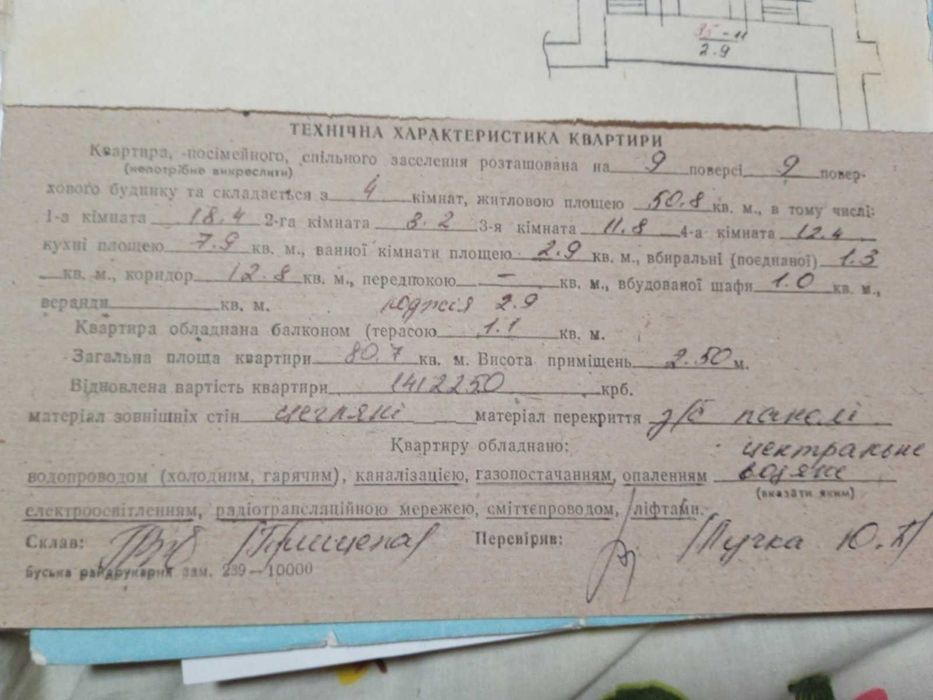 95-11
2.9
ТЕХНІЧНА ХАРАКТЕРИСТИКА КВАРТИРИ
Квартира, посімейного, спільного заселення розташована на 9 поверсі 9 повер-
(непотрібне викреслити)
хового будинку та складається з 4 кімнат, житловою площею 50.8 кв. м., в тому числі:
1-а кімната 18.4 2-га кімната 8.2 3-я кімната 11.8 4-а кімната 12.4
кухні площею 7.9 кв. м., ванної кімнати площею 2.9 кв. м., вбиральні (поєднаної) 1.3
кв. м., коридор 12.8 кв. м., передпокою – кв. м., вбудованої шафи 1.0 кв. м.,
веранди кв. м. лоджія 2.9
Квартира обладнана балконом (терасою 1.1 кв. м.
Загальна площа квартири 80.7 кв. м. Висота приміщень 2.50 м.
Відновлена вартість квартири 1412250 крб.
матеріал зовнішніх стін цегляні матеріал перекриття з/б панелі
Квартиру обладнано: центральне
водопроводом (холодним, гарячим), каналізацією, газопостачанням, опаленням водяне
(вказати яким)
електроосвітленням, радіотрансляційною мережею, сміттєпроводом, ліфтами.
Склав: Перевіряв: /Пучка Ю.
Буська райдрукарня зам. 239—10000